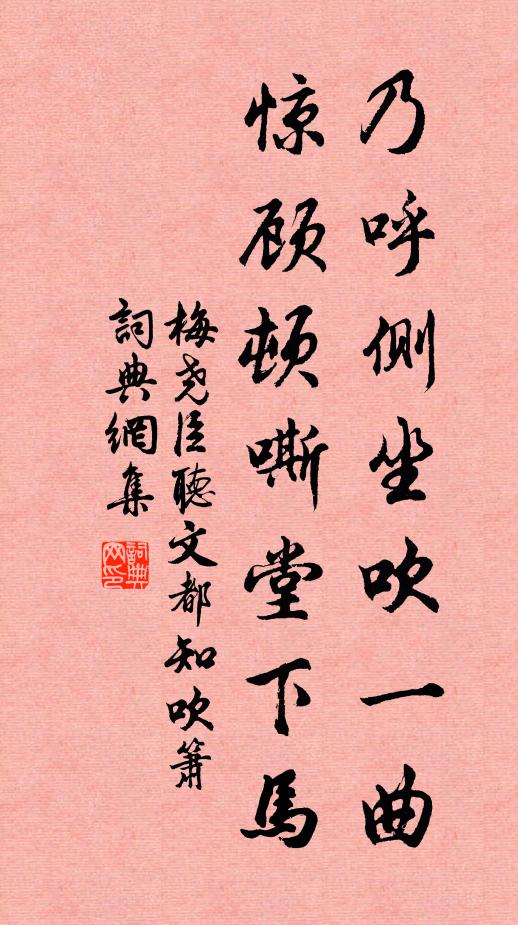 乃呼侧坐吹一曲
惊顾顿嘶堂下馬
梅尧臣聽文都知吹簫
詞典網集
詞典网印